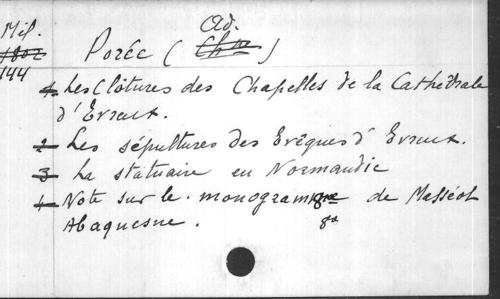 Mil. Ad.
1802 Porée (Chne)
144
1. Les Clôtures des Chapelles de la Cathédrale
d'Evreux.
2 Les sépultures des Evêques d'Evreux.
3 La statuaire en Normandie
4 Note sur le monogramme de Masséot
Abaquesne. 8°